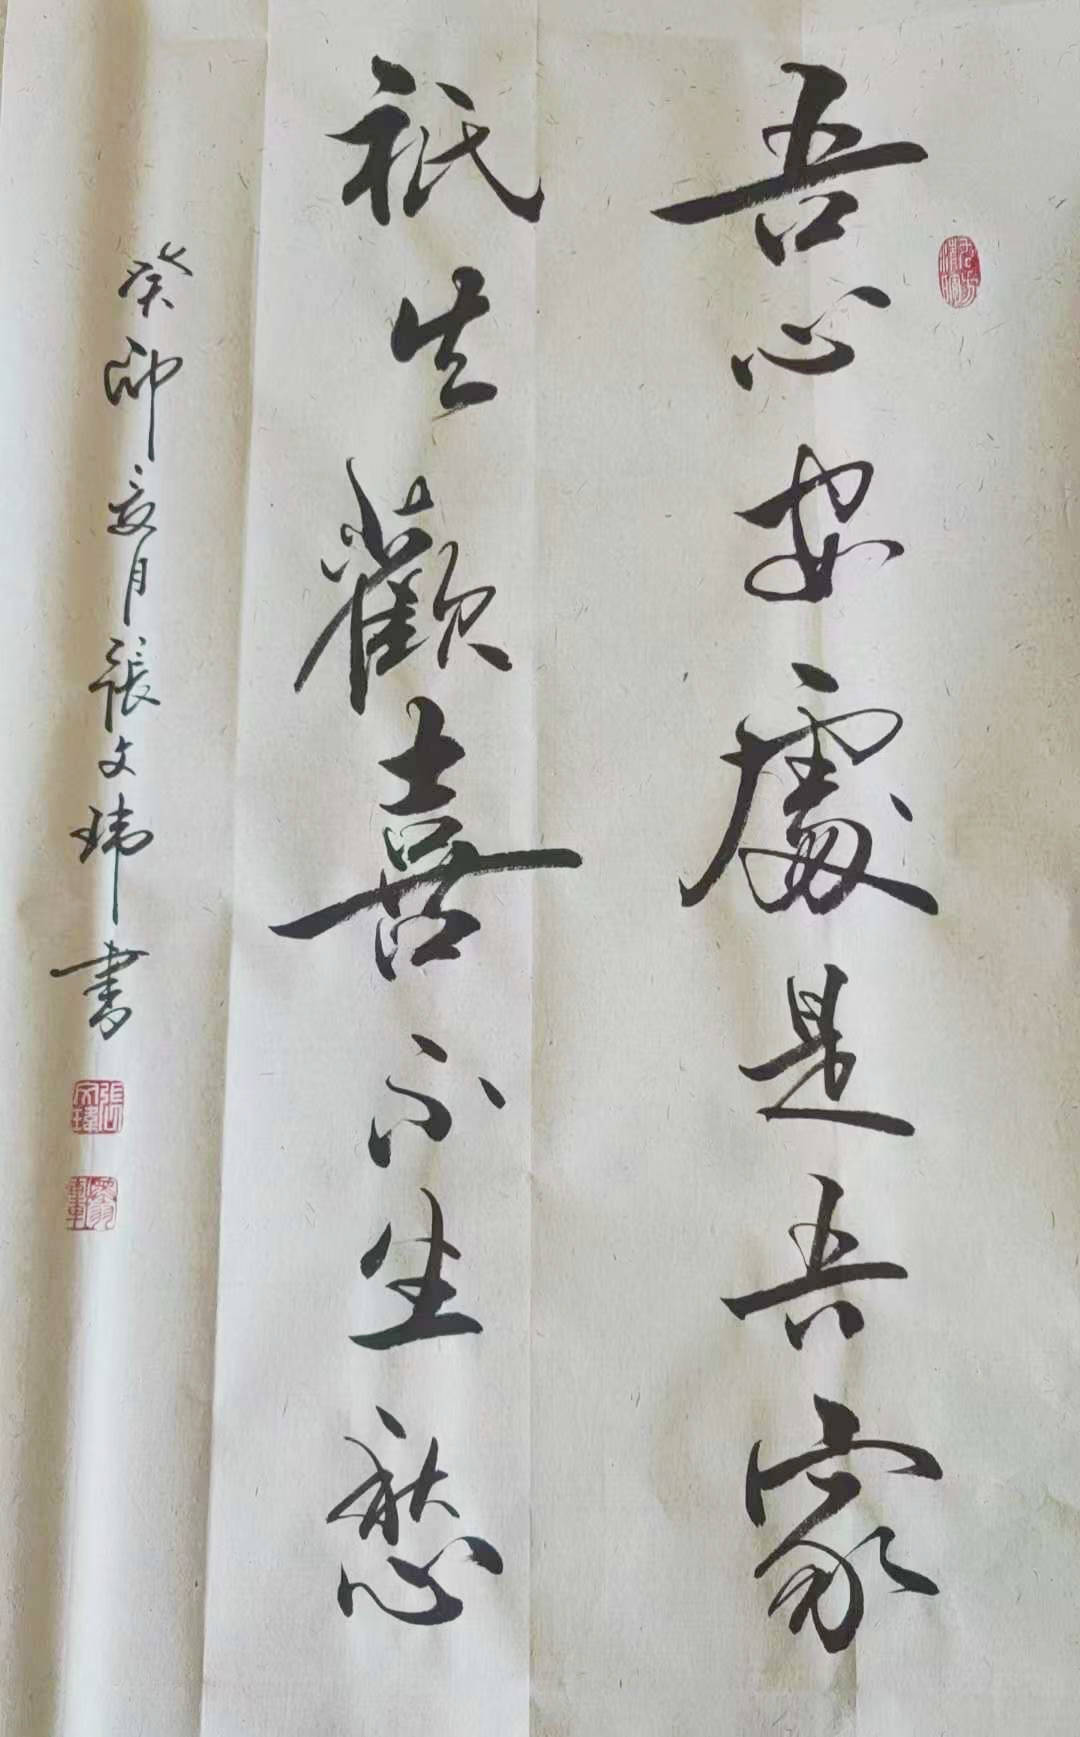 吾心安處是吾家
祇生歡喜不生愁
癸卯亥月張文瑋書
張文瑋